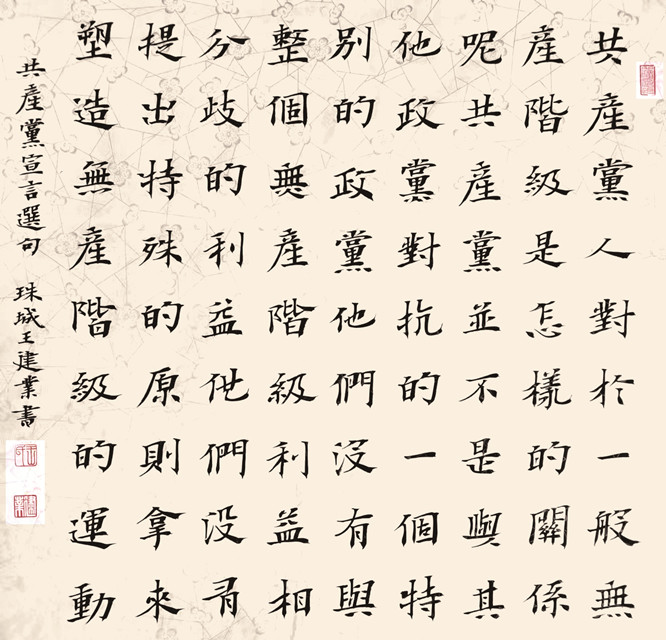 共產黨人對於一般無
產階級是怎樣的關係
呢共產黨並不是與其
他政黨對抗的一個特
別的政黨他們沒有與
整個無產階級利益相
分歧的利益他們沒有
提出特殊的原則拿來
塑造無產階級的運動
共產黨宣言選句 珠城王建業書